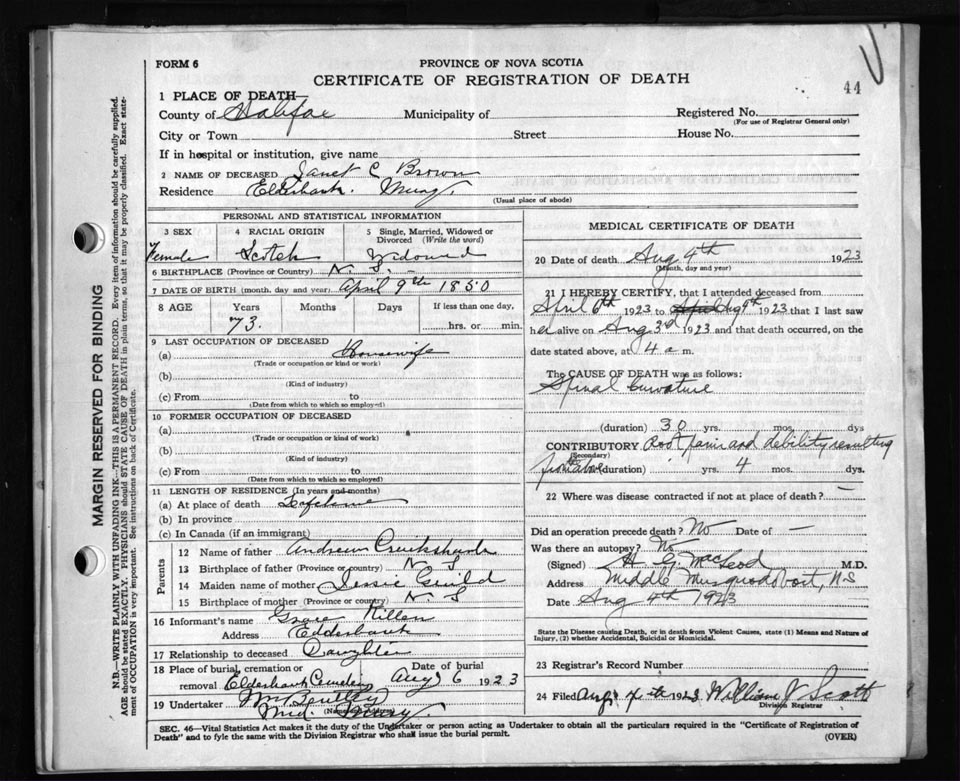 FORM 6
PROVINCE OF NOVA SCOTIA
CERTIFICATE OF REGISTRATION OF DEATH
44
1 PLACE OF DEATH—
County of Halifax Municipality of Registered No.
(For use of Registrar General only)
City or Town Street House No.
If in hospital or institution, give name
2 NAME OF DECEASED Janet C Brown
Residence Elderbank Musq't.
(Usual place of abode)
PERSONAL AND STATISTICAL INFORMATION
3 SEX 4 RACIAL ORIGIN 5 Single, Married, Widowed or Divorced (Write the word)
Female Scotch Widowed
6 BIRTHPLACE (Province or Country) N. S.
7 DATE OF BIRTH (month, day and year) April 9th 1850
8 AGE Years Months Days If less than one day,
73. hrs. or min.
9 LAST OCCUPATION OF DECEASED
(a) Housewife
(Trade or occupation or kind or work)
(b)
(Kind of industry)
(c) From to
(Date from which to which so employed)
10 FORMER OCCUPATION OF DECEASED
(a)
(Trade or occupation or kind of work)
(b)
(Kind of industry)
(c) From to
(Date from which to which so employed)
11 LENGTH OF RESIDENCE (In years and months)
(a) At place of death Lifetime
(b) In province
(c) In Canada (if an immigrant)
Parents
12 Name of father Andrew Cruikshank
13 Birthplace of father (Province or country) N S
14 Maiden name of mother Jessie Guild
15 Birthplace of mother (Province or country) N. S
16 Informant's name Grace Killen
Address Elderbank
17 Relationship to deceased Daughter
18 Place of burial, cremation or removal Elderbank Cemetery Date of burial Aug 6 1923
19 Undertaker
(Name and address)
Mid. Musq't.
MEDICAL CERTIFICATE OF DEATH
20 Date of death Aug 4th 1923
(Month, day and year)
21 I HEREBY CERTIFY, that I attended deceased from
April 6th 1923 to April Aug 4th 1923 that I last saw
her alive on Aug 3rd 1923 and that death occurred, on the
date stated above, at 4 a m.
The CAUSE OF DEATH was as follows:
Spinal Curvature
(duration) 30 yrs. mos. dys
CONTRIBUTORY Root pain and debility resulting
(Secondary)
from above (duration) yrs. 4 mos. dys.
22 Where was disease contracted if not at place of death? —
Did an operation precede death? No Date of —
Was there an autopsy? No
(Signed) H. G. MacLeod M.D.
Address Middle Musquodoboit, N S
Date Aug 4th 1923
State the Disease causing Death, or in death from Violent Causes, state (1) Means and Nature of
Injury, (2) whether Accidental, Suicidal or Homicidal.
23 Registrar's Record Number
24 Filed Aug. 4th 1923 William J Scott
Division Registrar
SEC. 46—Vital Statistics Act makes it the duty of the Undertaker or person acting as Undertaker to obtain all the particulars required in the "Certificate of Registration of
Death" and to fyle the same with the Division Registrar who shall issue the burial permit. (OVER)
MARGIN RESERVED FOR BINDING
N.B.—WRITE PLAINLY WITH UNFADING INK—THIS IS A PERMANENT RECORD. Every item of information should be carefully supplied.
AGE should be stated EXACTLY. PHYSICIANS should STATE CAUSE OF DEATH in plain terms, so that it may be properly classified. Exact state-
ment of OCCUPATION is very important. See instructions on back of Certificate.